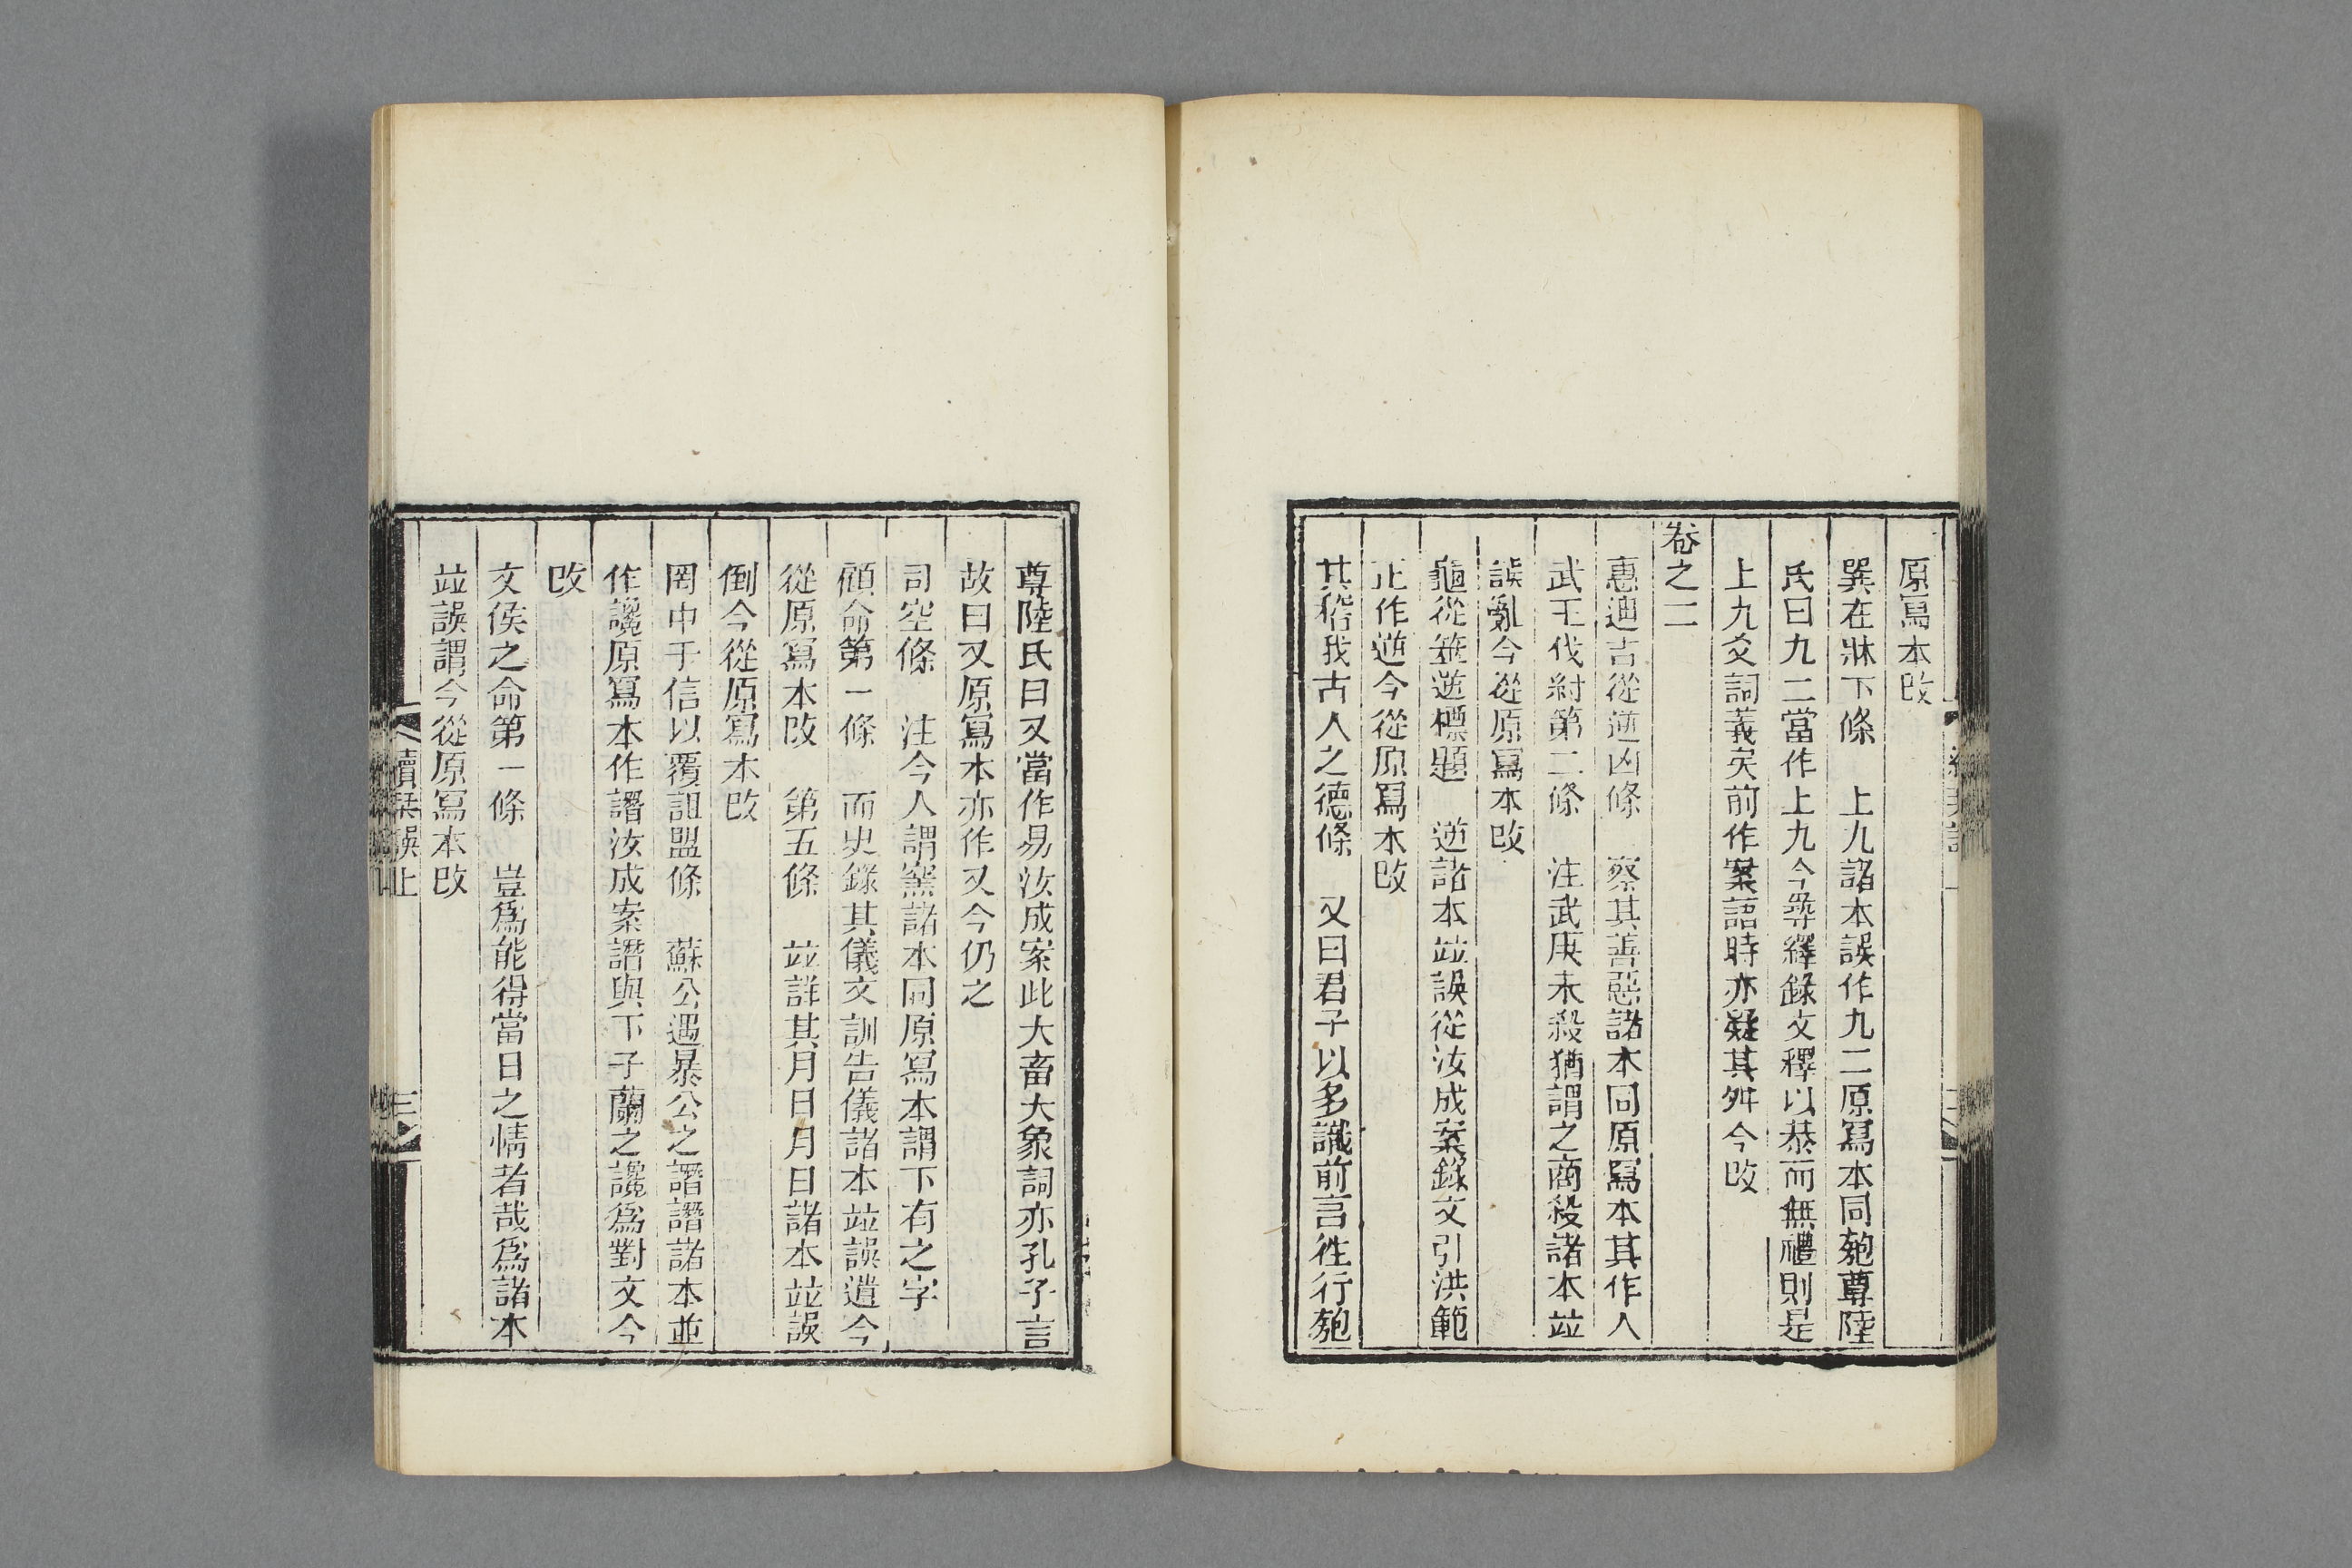 原寫本改
巽在牀下條　上九諸本誤作九二原寫本同匏尊陸
氏曰九二當作上九今尋繹錄文釋以恭而無禮則是
上九爻詞義矣前作案語時亦疑其舛今改
卷之二
惠迪吉從逆凶條　察其善惡諸本同原寫本其作人
武王伐紂第二條　注武庚未殺猶謂之商殺諸本竝
誤亂今從原寫本改
龜從筮逆標題　逆諸本竝誤從汝成案錄文引洪範
正作逆今從原寫本改
其稽我古人之德條　又曰君子以多識前言往行匏
尊陸氏曰又當作易汝成案此大畜大象詞亦孔子言
故曰又原寫本亦作又今仍之
司空條　注今人謂窯諸本同原寫本謂下有之字
顧命第一條　而史錄其儀文訓告儀諸本竝誤遺今
從原寫本改　第五條　竝詳其月日月日諸本竝誤
倒今從原寫本改
罔中于信以覆詛盟條　蘇公遇暴公之譖譖諸本並
作讒原寫本作譖汝成案譖與下子蘭之讒爲對文今
改
文侯之命第一條　豈爲能得當日之情者哉爲諸本
竝誤謂今從原寫本改
續栞誤上
三